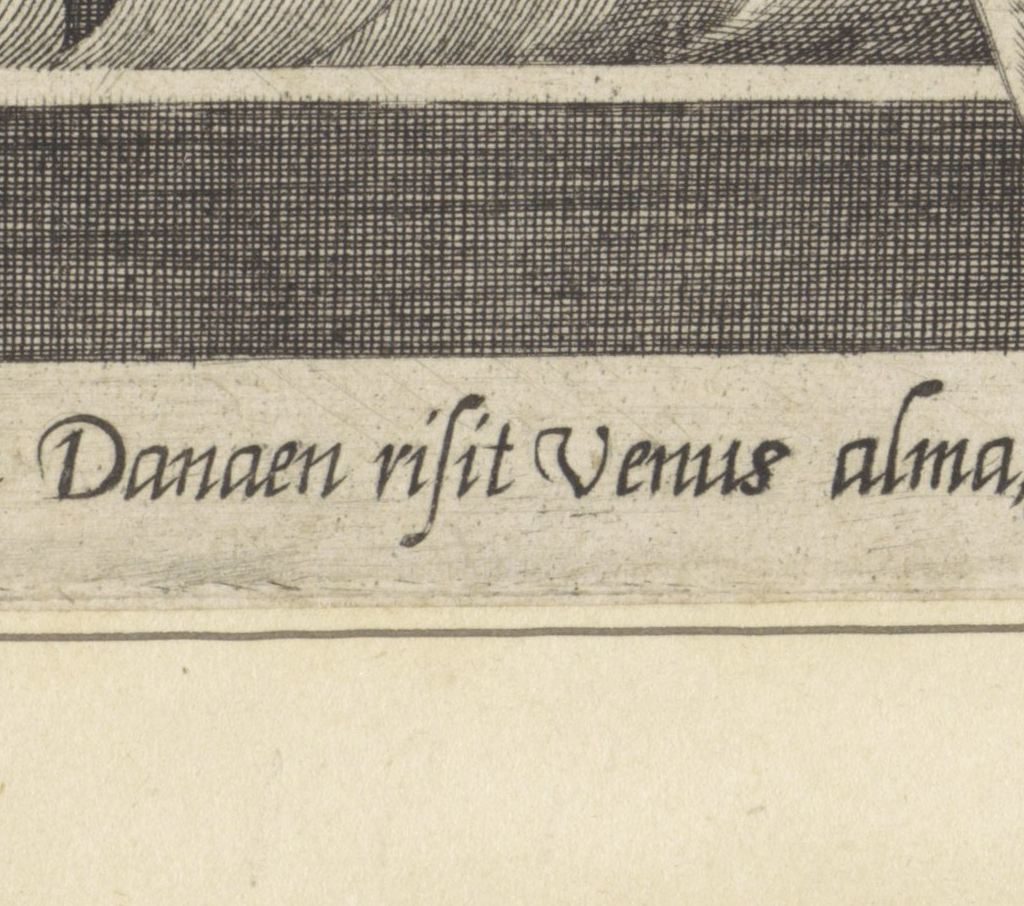 Danaen riſit Venus alma,